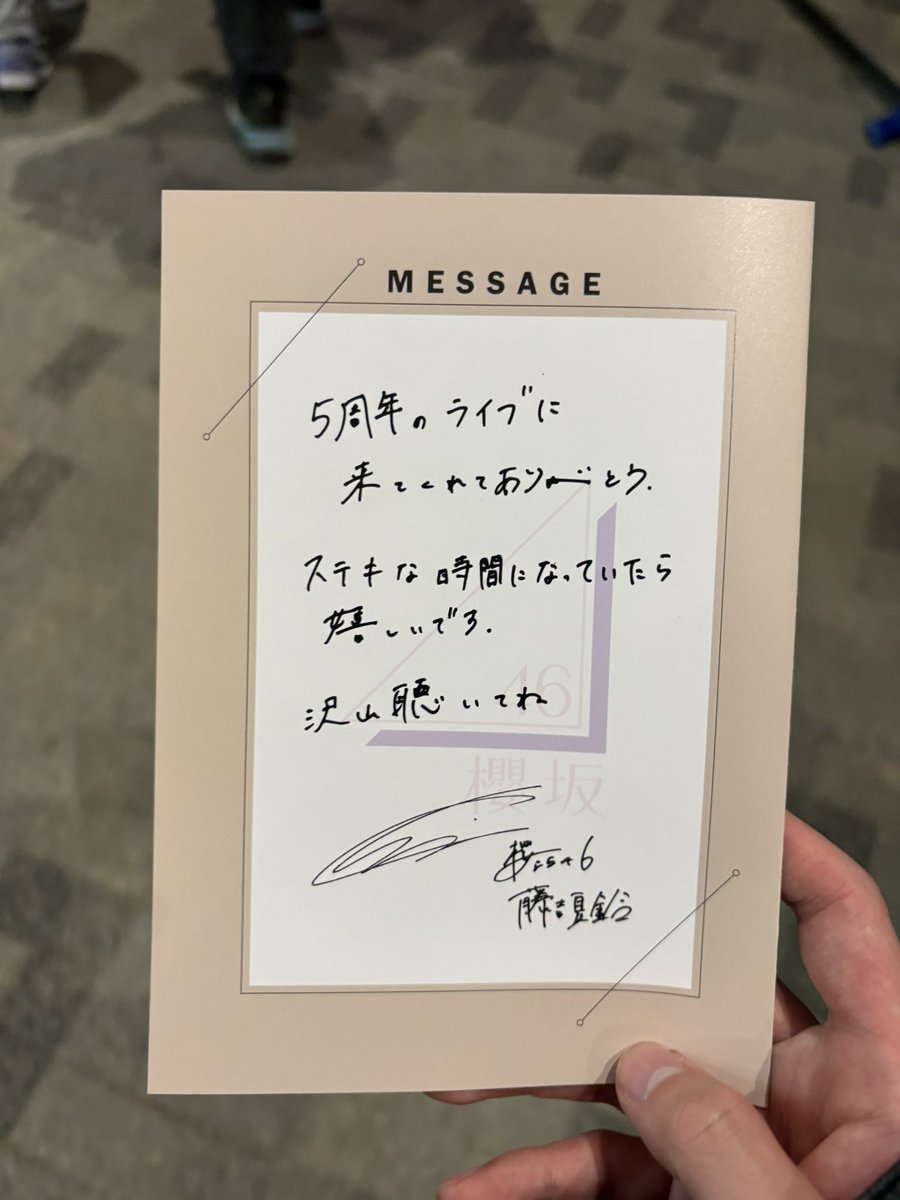 MESSAGE
5周年のライブに
来てくれてありがとう.
ステキな時間になっていたら
嬉しいです.
沢山聴いてね
46
櫻坂
櫻坂46
藤吉夏鈴